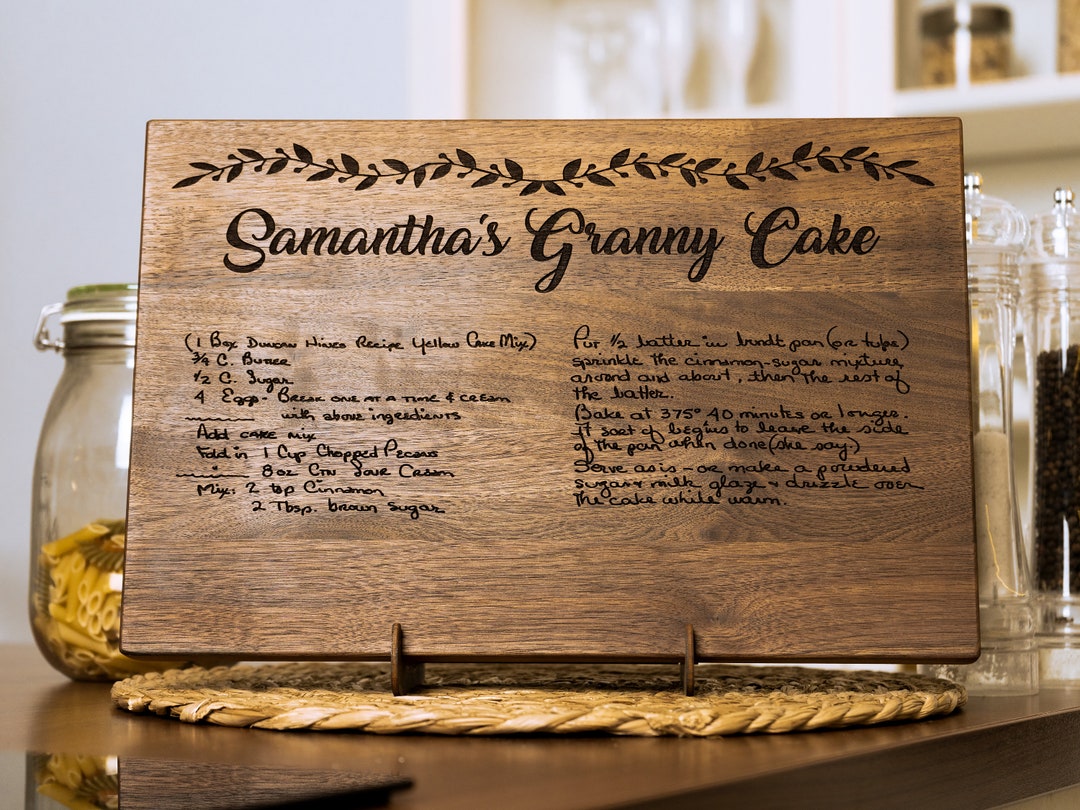 Samantha's Granny Cake
(1 Box Duncan Hines Recipe Yellow Cake Mix)
3/4 C. Butter
1/2 C. Sugar
4 Eggs - Break one at a time & cream
with above ingredients
Add cake mix
Fold in 1 Cup Chopped Pecans
" 8 oz Ctn Sour Cream
Mix: 2 tsp Cinnamon
2 Tbsp. brown sugar
Put 1/2 batter in bundt pan (or tube)
sprinkle the cinnamon-sugar mixture
around and about, then the rest of
the batter.
Bake at 375° 40 minutes or longer.
It sort of begins to leave the side
of the pan when done (she say.)
Serve as is - or make a powdered
sugar & milk glaze & drizzle over
the cake while warm.